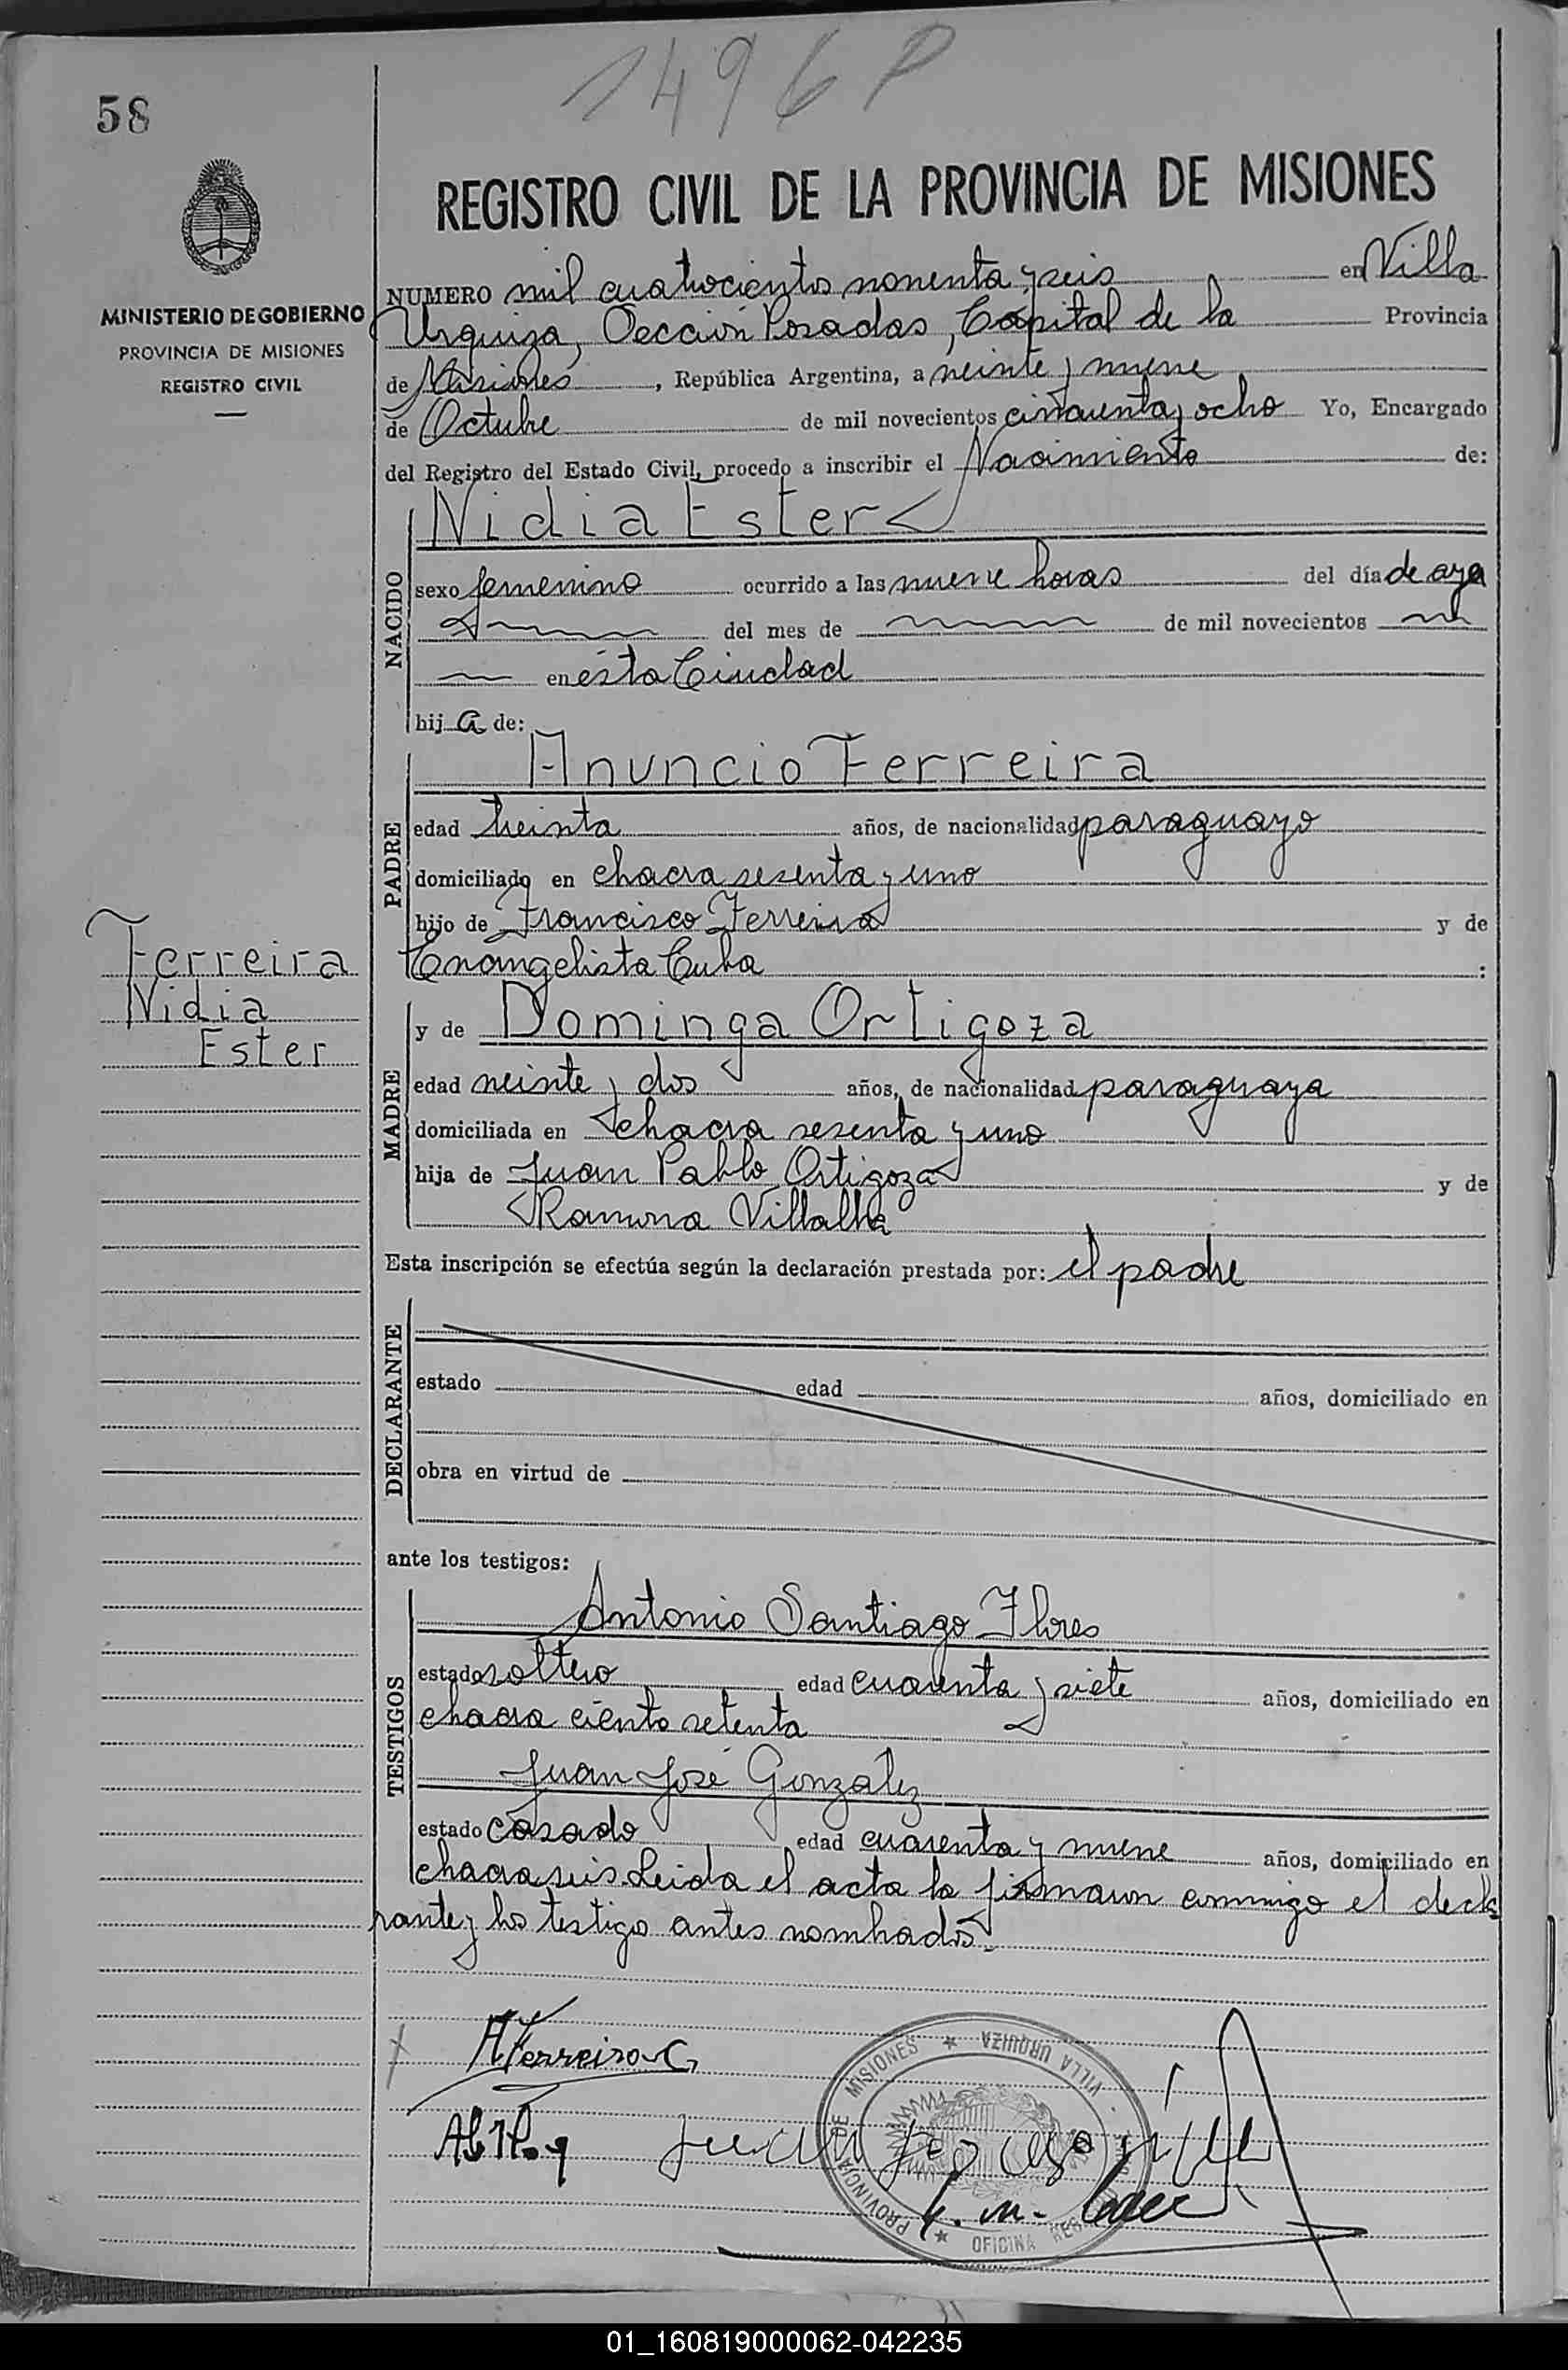 1496 P
58
REGISTRO CIVIL DE LA PROVINCIA DE MISIONES
MINISTERIO DE GOBIERNO
PROVINCIA DE MISIONES
REGISTRO CIVIL
NUMERO mil cuatrocientos nonenta y seis en Villa
Urquiza, Sección Posadas, Capital de la Provincia
de Misiones, República Argentina, a veinte y nueve
de Octubre de mil novecientos cincuenta y ocho Yo, Encargado
del Registro del Estado Civil, procedo a inscribir el Nacimiento de:
Nidia Ester
NACIDO
sexo femenino ocurrido a las nueve horas del día de aye
del mes de de mil novecientos
en ésta Ciudad
hij a de:
Anuncio Ferreira
PADRE
edad treinta años, de nacionalidad paraguayo
domiciliado en chacra sesenta y uno
hijo de Francisco Ferreira y de
Evangelista Cuba :
Ferreira
Nidia
Ester
y de Dominga Ortigoza
MADRE
edad veinte y dos años, de nacionalidad paraguaya
domiciliada en chacra sesenta y uno
hija de Juan Pablo Ortigoza y de
Ramona Villalba
Esta inscripción se efectúa según la declaración prestada por: el padre
DECLARANTE
estado edad años, domiciliado en
obra en virtud de
ante los testigos:
TESTIGOS
Antonio Santiago Flores
estado soltero edad cuarenta y siete años, domiciliado en
chacra ciento setenta
Juan José Gonzalez
estado casado edad cuarenta y nueve años, domiciliado en
chacra seis. Leida el acta la firmaron conmigo el decla
rante y los testigo antes nombrados.
AFerreira C
PROVINCIA DE MISIONES * VILLA URQUIZA
OFICINA
01_160819000062-042235